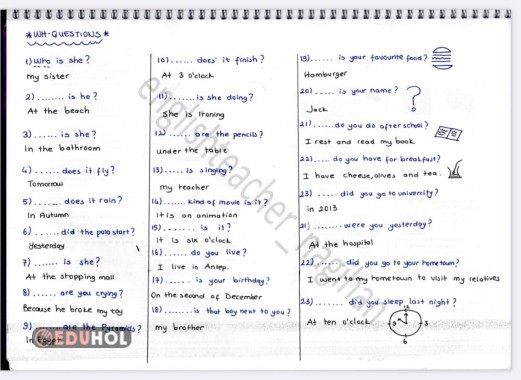 *WH-QUESTIONS*
1) Who is she?
my sister
2) ........ is he?
At the beach
3) ...... is she?
In the bathroom
4) ...... does it fly?
Tomorrow
5) ...... does it rain?
In Autumn
6) ...... did the polo start?
Yesterday
7) ...... is she?
At the shopping mall
8) ...... are you crying?
Because he broke my toy
9) ...... are the Pyramids?
In
EDUHOL
10) ...... does it finish?
At 3 o'clock
11) ...... is she doing?
She is Ironing
12) ...... are the pencils?
under the table
13) ..... is singing?
my teacher
14) ....... kind of movie is it?
It is an animation
15) ....... is it?
It is six o'clock
16) ...... do you live?
I live in Antep.
17) ...... is your birthday?
On the second of December
18) ....... is that boy next to you?
my brother
19) ...... is your favourite food?
Hamburger
20) ..... is your name?
?
Jack
21) ..... do you do after school?
I rest and read my book
22) ..... do you have for breakfast?
I have cheese, olives and tea.
23) ..... did you go to university?
in 2013
21) ....... were you yesterday?
At the hospital
22) ...... did you go to your hometown?
I went to my hometown to visit my relatives
23) ....... did you sleep last night?
At ten o'clock
12
9
3
6
englishteacher_nagihan